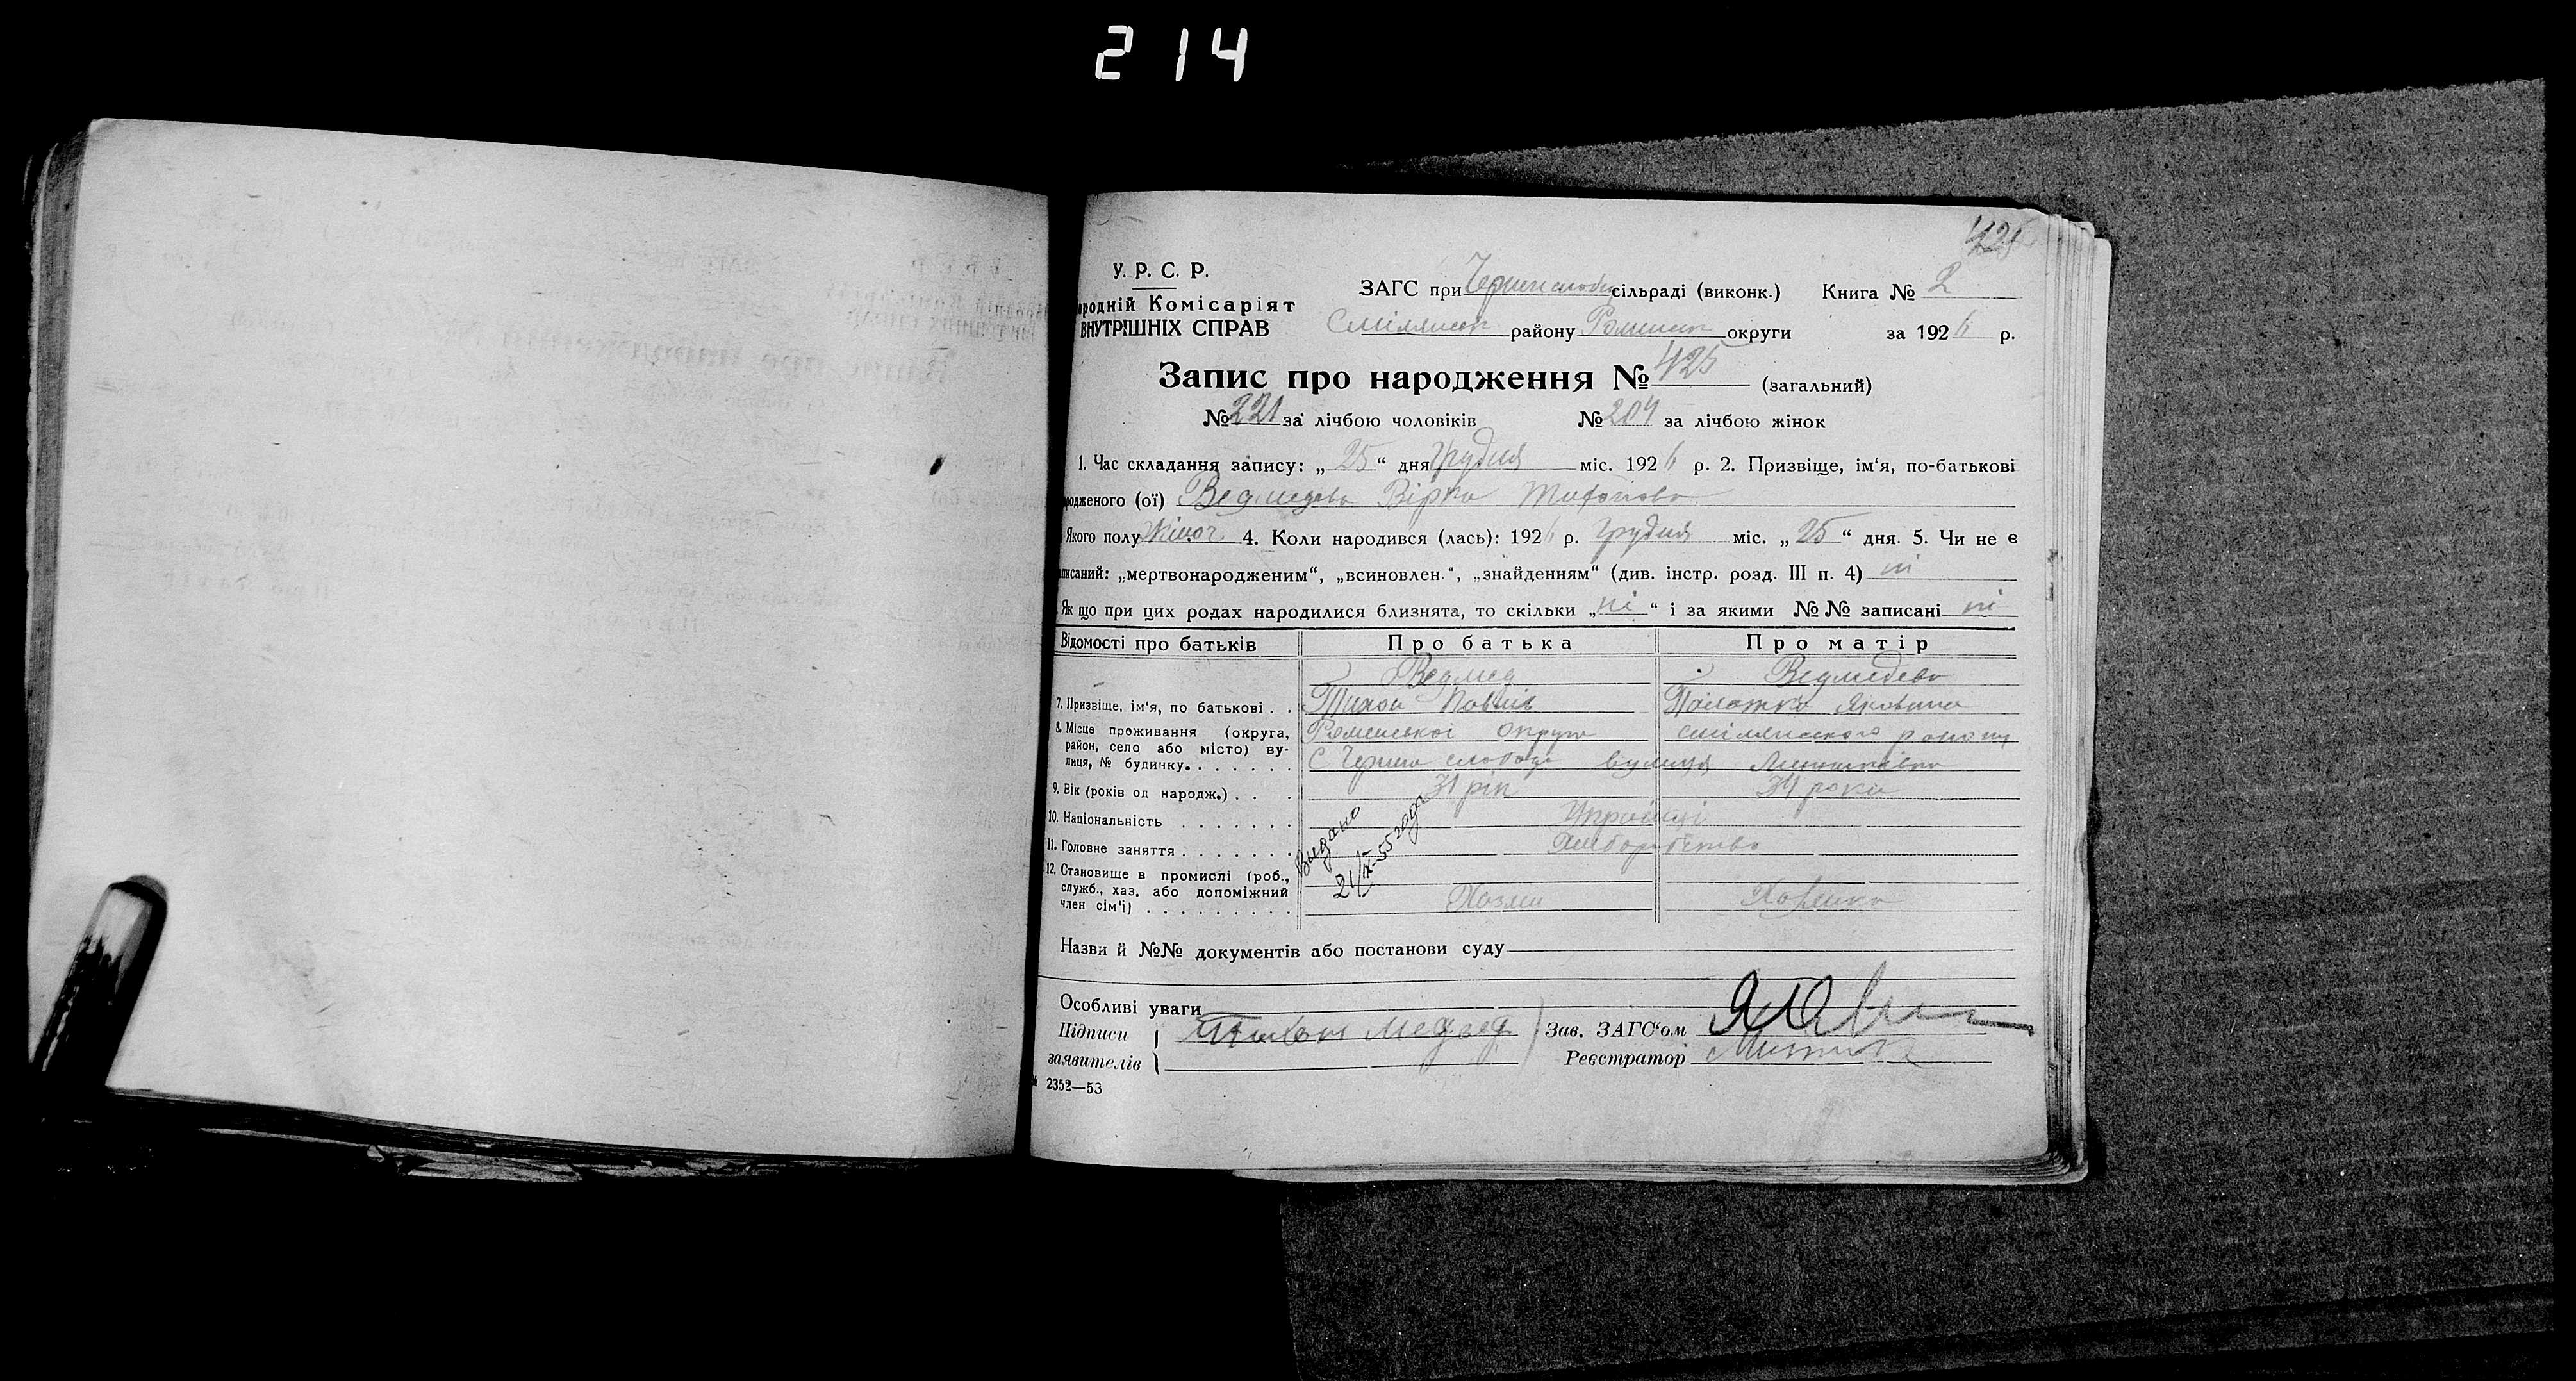 214
425
У. Р. С. Р.
ародній Комісаріят
ВНУТРІШНІХ СПРАВ
ЗАГС при Чернеслобід сільраді (виконк.) Книга № 2
Смілянськ району Роменськ округи за 1926 р.
Запис про народження № 425 (загальний)
№ 221 за лічбою чоловіків № 204 за лічбою жінок
1. Час складання запису: „ 25 “ дня грудня міс. 1926 р. 2. Призвіще, ім‘я, по-батькові
родженого (ої) Ведмедева Вірка Тихонова
Якого полу Жіноч. 4. Коли народився (лась): 1926 р. грудня міс. „ 25 “ дня. 5. Чи не є
писаний: „мертвонародженим“, „всиновлен.“, „знайденням“ (див. інстр. розд. III п. 4) ні
Як що при цих родах народилися близнята, то скільки „ ні “ і за якими №№ записані ні
Відомості про батьків Про батька Про матір
Ведмед Ведмедева
7. Призвіще, ім‘я, по батькові . . Тихон Павлів Палажка Яковина
8. Місце проживання (округа, Роменської округи смілянського району
район, село або місто) ву-
лиця, № будинку. . . . . . . С Черне слобода вулиця
9. Вік (років од народж.) . . . 31 рік 34 роки
10. Національність . . . . . . . Українці
11. Головне заняття . . . . . . . Хліборобство
12. Становище в промислі (роб.,
служб., хаз. або допоміжний
член сім‘ї) . . . . . . . . . Хазяин Хазяйка
Видано
21/IX-55 года
Назви й №№ документів або постанови суду
Особливі уваги
Підписи Тихон Медвед Зав. ЗАГС‘ом
заявителів Реєстратор
№ 2352—53